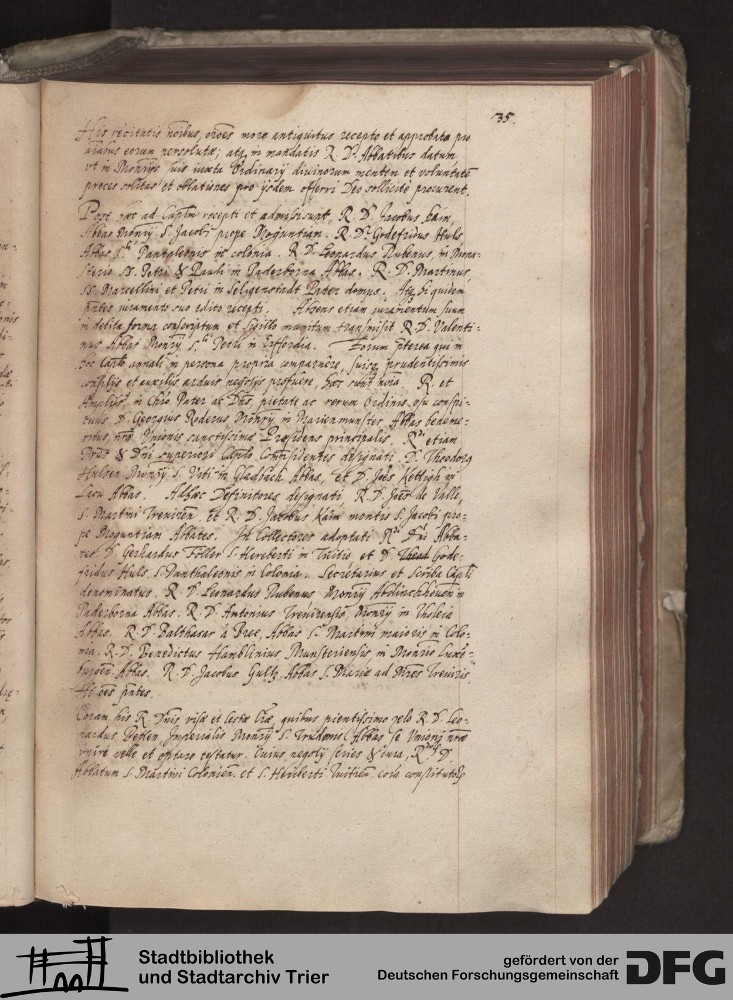 35.
His recitatis noībus, oroēs more antiquitus recepto et approbato pro
aīabus eorum persolutæ; atq; in mandatis R. Dⁿⁱˢ Abbatibus datum
ut in Monrijs suis iuxta Ordinarij divinorum mentem et voluntatē
preces solitas et oblationes pro ijsdem offerri Deo sollicitè procurent.
Post hæc ad Capłm recepti et admissi sunt, R. D. Jacobus Kain,
Abbas Monrij S. Jacobi prope Moguntiam. R. D. Godefridus Huls
Abbas Sᵗⁱ Pantaleonis in colonia. R. D. Leonardus Rubenus, in Mona-
sterio SS. Petri & Pauli in Paderborna Abbas. R. D. Martinus
SS. Marcellini et Petri in Seligenstadt Pater domus. Atq; hi quidem
pñtes iuramento suo edito recepti. Absens etiam iuramentum suum
in debita forma conscriptum et sigillo munitum transmisit R. D. Valenti-
nus Abbas Monrij Sᵗⁱ Petri in Erffordia. Eorum pterea qui in
hoc Capło annali in persona propria comparuêre, suisq; prudentissimis
consilijs et auxilijs arduis negotijs profuêre, hæc sunt noīa. R. et
Ampliss. in Chr̄o Pater ac Dn̄s, pietate ac rerum Ordinis usu conspi-
cuus D. Georgius Roderus Monrij in Marienmunster Abbas beneme-
ritus, nr̄æ Unionis sanctissimæ Præsidens principalis. Rⁱ etiam
Pr̄es & Dn̄i superiori Capłō Conpræsidentes designati D. Theodorus
Hulsen Monrij S. Viti in Gladbach Abbas, et D. Joēs Kettigh in
Lacu Abbas. Adhæc Definitores designati R. D. Joēs de Valle,
S. Martini Treviren. et R. D. Jacobus Kain montis S. Jacobi pro-
pe Moguntiam Abbates. In Collectores adoptati Rⁱ Dn̄i Abba-
tes D. Gerhardus Föller S. Hereberti in Tuitio et D. Gode-
fridus Huls S. Panthaleonis in Colonia. Secretarius et Scriba Capłi
denominatus. R. D. Leonardus Rubenus Monrij Abdinckhouen in
Paderborna Abbas. R. D. Antonius Trevirensis, Monrij in Tholeia
Abbas. R. D. Balthasar à Bree, Abbas Sᵗⁱ Martini maioris in Colo-
nia. R. D. Benedictus Hamblinius Munsteriensis in Monrio Luxē-
burgen Abbas. R. D. Jacobus Gultz, Abbas S. Mariæ ad Mr̄es Treviris
Hi oēs pñtes.
Coram his R. Dn̄is visæ et lectæ lr̄æ, quibus pientissimo zelo R. D. Leo-
nardus Betten, Imperialis Monrij S. Trudonis Abbas se Unioni nr̄æ
unire velle et optare testatur. Cuius negotij series & cura, Rⁱˢ D.
Abbatum S. Martini Colonien. et S. Heriberti Tuitien. corā constitutos
Stadtbibliothek
und Stadtarchiv Trier
gefördert von der
Deutschen Forschungsgemeinschaft
DFG